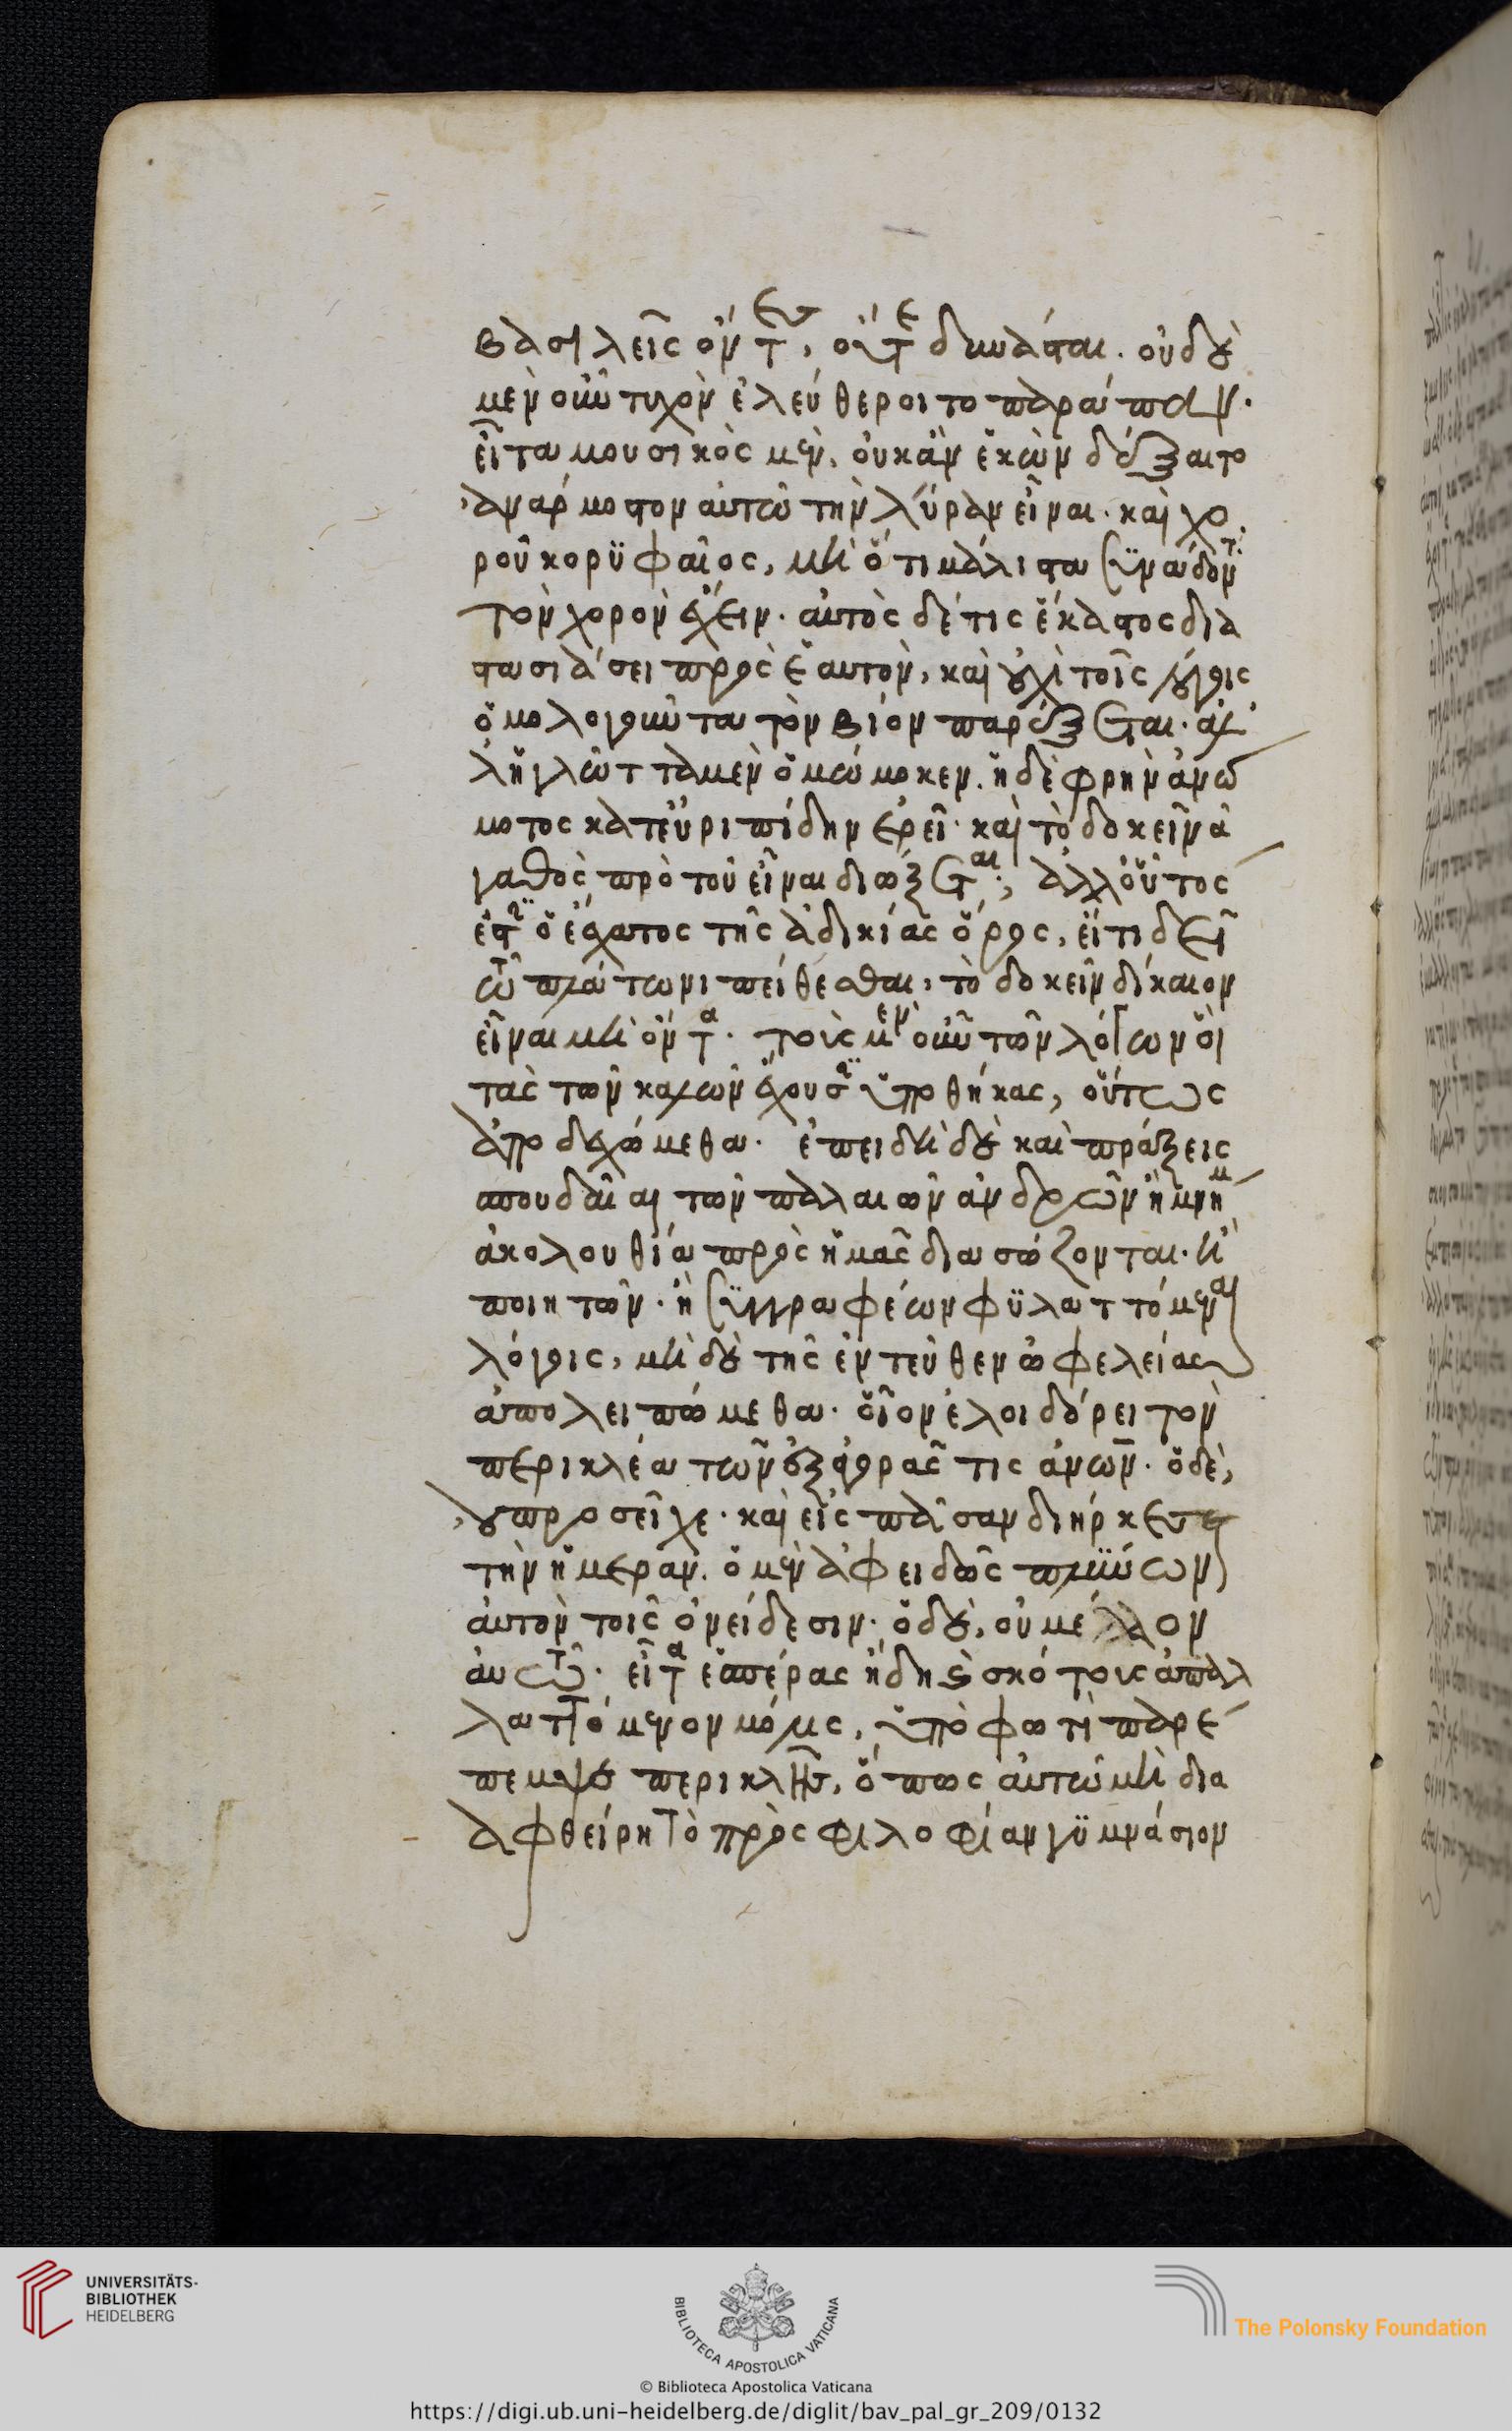 βασιλεῖς ὄντες, οὔτε δυνάσται. οὐδὲ
μὲν οὖν τυχὸν ἐλεύθεροι τοπαράπαν.
εἶτα μουσικὸς μὲν, οὐκ ἂν ἑκὼν δέξαιτο
ἀνάρμοστον αὐτῶ τὴν λύραν εἶναι. καὶ χο
ροῦ κορυφαῖος, μὴ ὅτι μάλιστα συνάδοντα
τὸν χορὸν ἔχειν. αὐτὸς δέ τις ἕκαστος δια
στασιάσει πρὸς ἑαυτὸν, καὶ οὐχὶ τοῖς λόγοις
ὁμολογοῦντα τὸν βίον παρέξεται. ἀλ
λ' ἡ γλῶττα μὲν ὀμώμοκεν. ἡ δὲ φρὴν ἀνώ
μοτος κατ' εὐριπίδην ἐρεῖ. καὶ τὸ δοκεῖν ἀ
γαθὸς πρὸ τοῦ εἶναι διώξεται; ἀλλ' οὗτος
ἐστὶν ὁ ἔσχατος τῆς ἀδικίας ὅρος, εἴ τι δεῖ
τῶ πλάτωνι πείθεσθαι, τὸ δοκεῖν δίκαιον
εἶναι μὴ ὄντα. τοὺς μὲν οὖν τῶν λόγων οἳ
τὰς τῶν καλῶν ἔχουσιν ὑποθήκας, οὕτως
ἀποδεχώμεθα. ἐπειδὴ δὲ καὶ πράξεις
σπουδαῖαι τῶν παλαιῶν ἀνδρῶν ἢ μνήμης
ἀκολουθία πρὸς ἡμᾶς διασώζονται. ἢ
ποιητῶν. ἢ συγγραφέων φυλαττόμεναι
λόγοις, μὴ δὲ τῆς ἐντεῦθεν ὠφελείας
ἀπολειπώμεθα. οἷον ἐλοιδόρει τὸν
περικλέα τῶν ἐξ ἀγορᾶς τις ἀνθρώπων. ὁ δὲ,
οὐ προσεῖχε. καὶ εἰς πᾶσαν διήρκεσε
τὴν ἡμέραν. ὁ μὲν ἀφειδῶς πλύνων
αὐτὸν τοῖς ὀνείδεσιν. ὁ δὲ, οὐ μέλλον
αὐτῶ. εἶτα ἑσπέρας ἤδη καὶ σκότους ἀπαλ
λαττόμενον μόλις, ὑπὸ φωτὶ παρέ
πεμψε περικλῆς, ὅπως αὐτῶ μὴ δια
φθείρη τὸ πρὸς φιλοσοφίαν γυμνάσιον
UNIVERSITÄTS-
BIBLIOTHEK
HEIDELBERG
BIBLIOTECA APOSTOLICA VATICANA
The Polonsky Foundation
© Biblioteca Apostolica Vaticana
https://digi.ub.uni-heidelberg.de/diglit/bav_pal_gr_209/0132